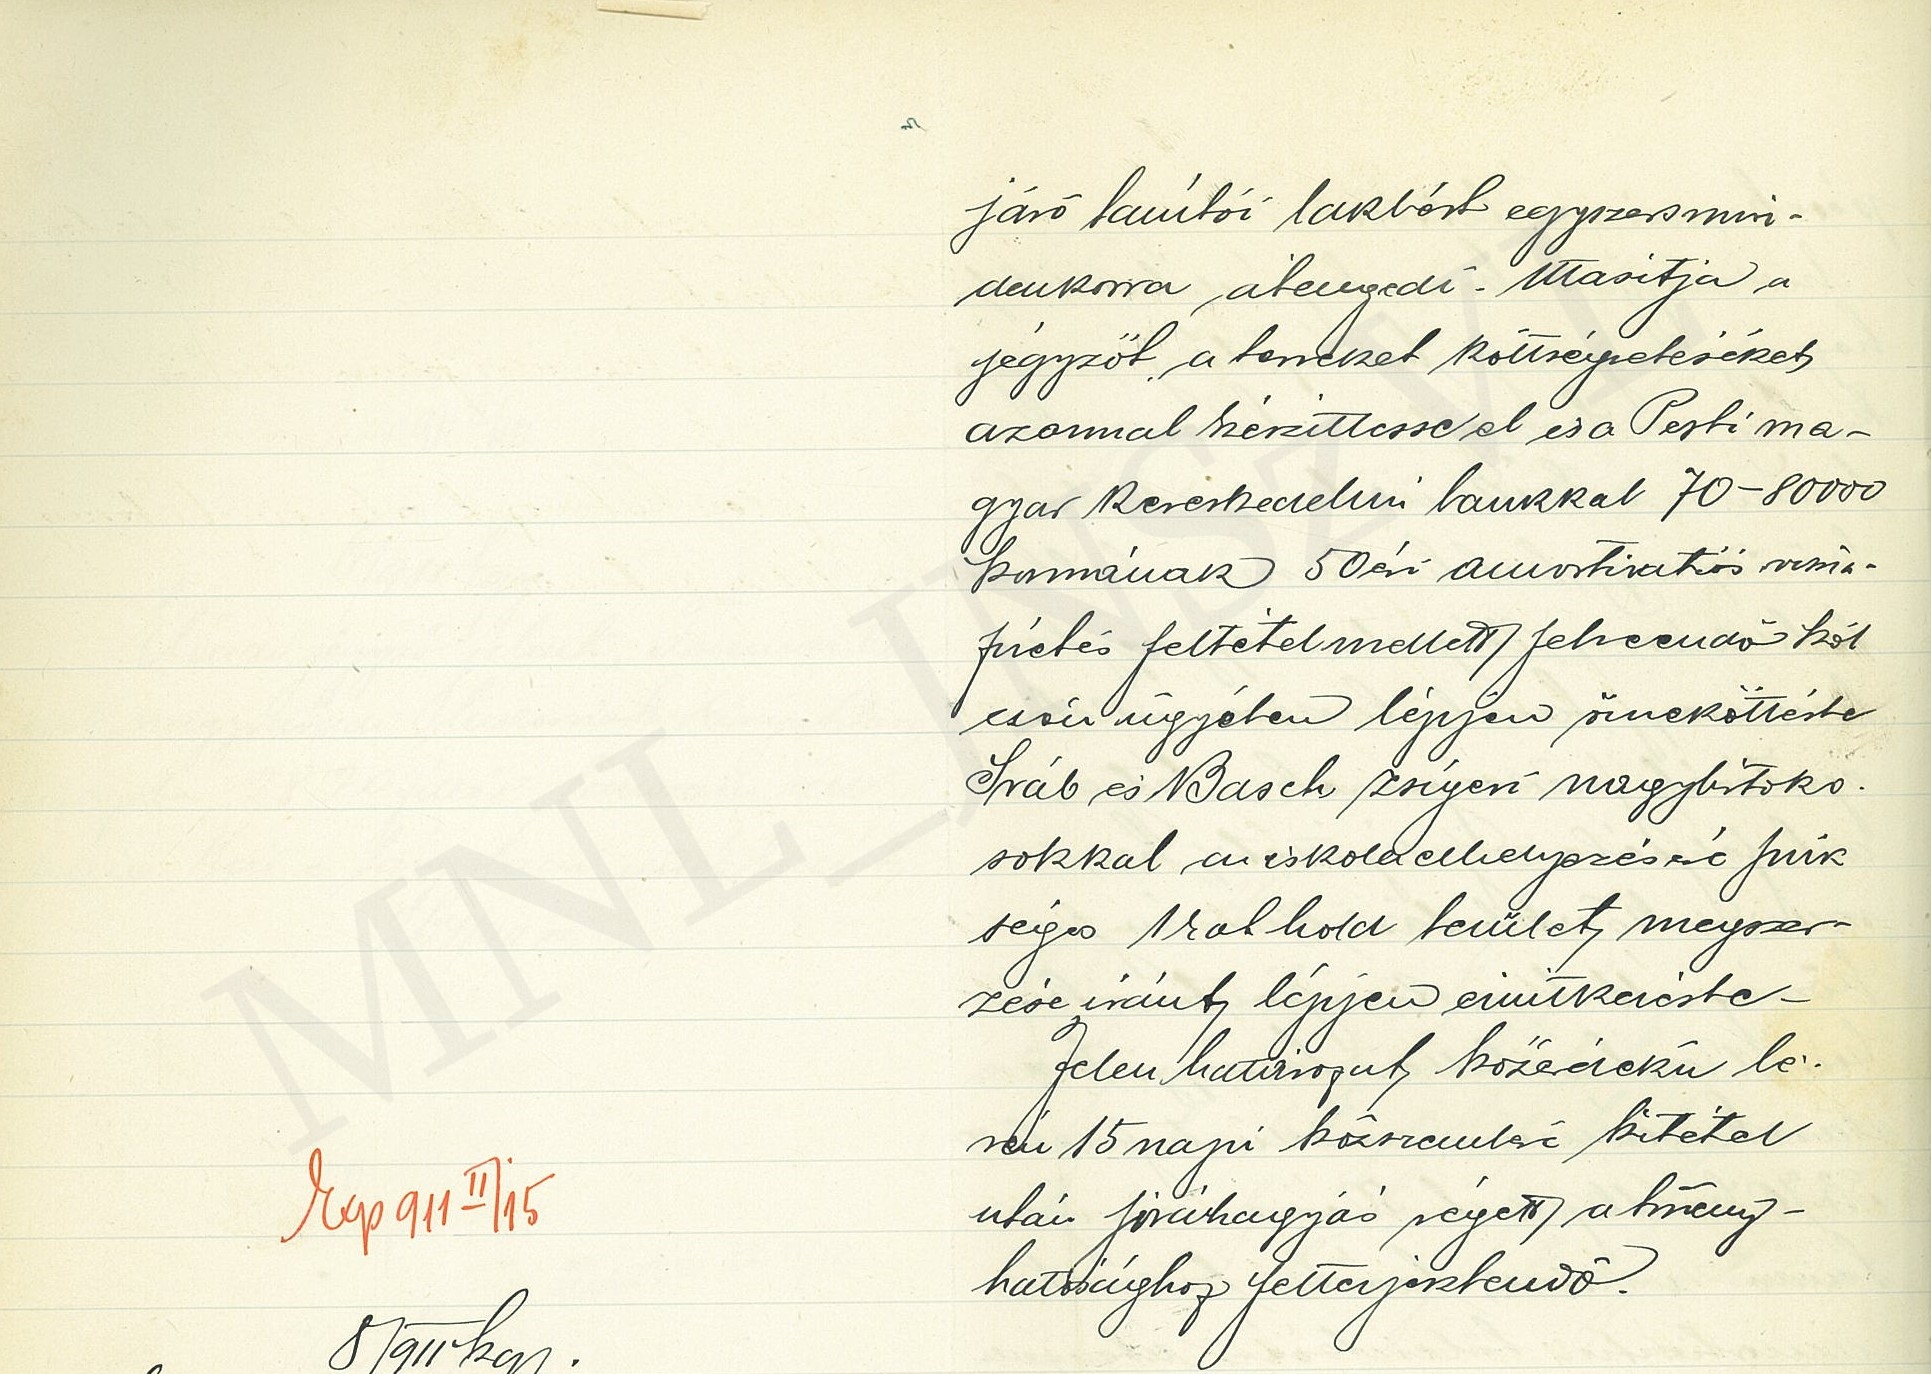 járó tanítói lakbért egyszersmin-
denkorra átengedi. Utasitja a
jegyzőt, a terveket költségvetéseket
azonnal készittesse el és a Pesti ma-
gyar kereskedelmi bankkal 70-80000
koronának 50 évi amortizatiós vissza-
fizetés feltétel mellett felveendő köl
csön ügyében lépjen összeköttésbe
Sváb és Basch zsigeri nagybirtoko-
sokkal az iskola elhelyezésére szük
séges 1 kat hold terület megszer-
zése iránt lépjen érintkezésbe-
Jelen határozat közérdekű lé-
vén 15 napi közszemlére kitétel
után jóváhagyás végett a törvény-
hatósághoz felterjesztendő.
911 II/15
8/911 kgy.
MNL_JNSZVL